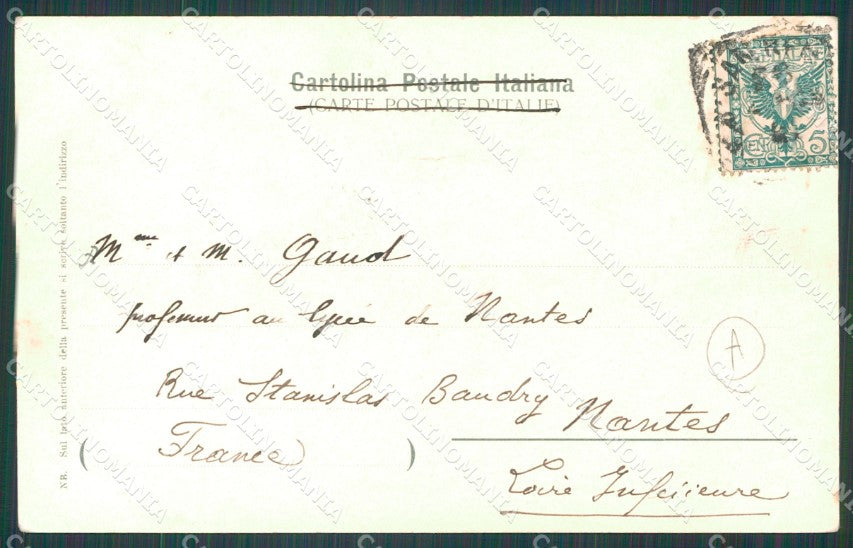 Cartolina Postale Italiana
(CARTE POSTALE D'ITALIE)
CENT. 5
NB. Sul lato anteriore della presente si scrive soltanto l'indirizzo
Mme & M. Gaud
professeur au lycée de Nantes
A
Rue Stanislas Baudry Nantes
(France)
Loire Inférieure
CARTOLINOMANIA